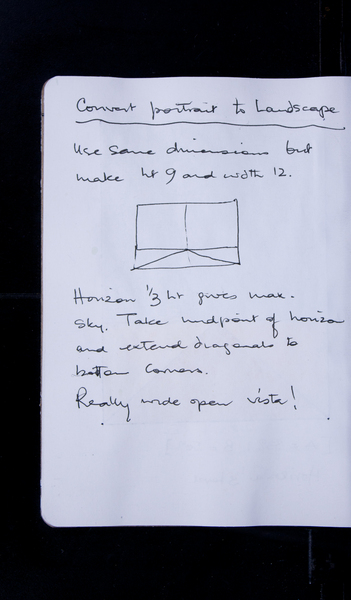 Convert portrait to Landscape
Use same dimensions but
make ht 9 and width 12.
Horizon 1/3 ht gives max.
sky. Take midpoint of horizon
and extend diagonals to
bottom corners.
Really wide open vista!